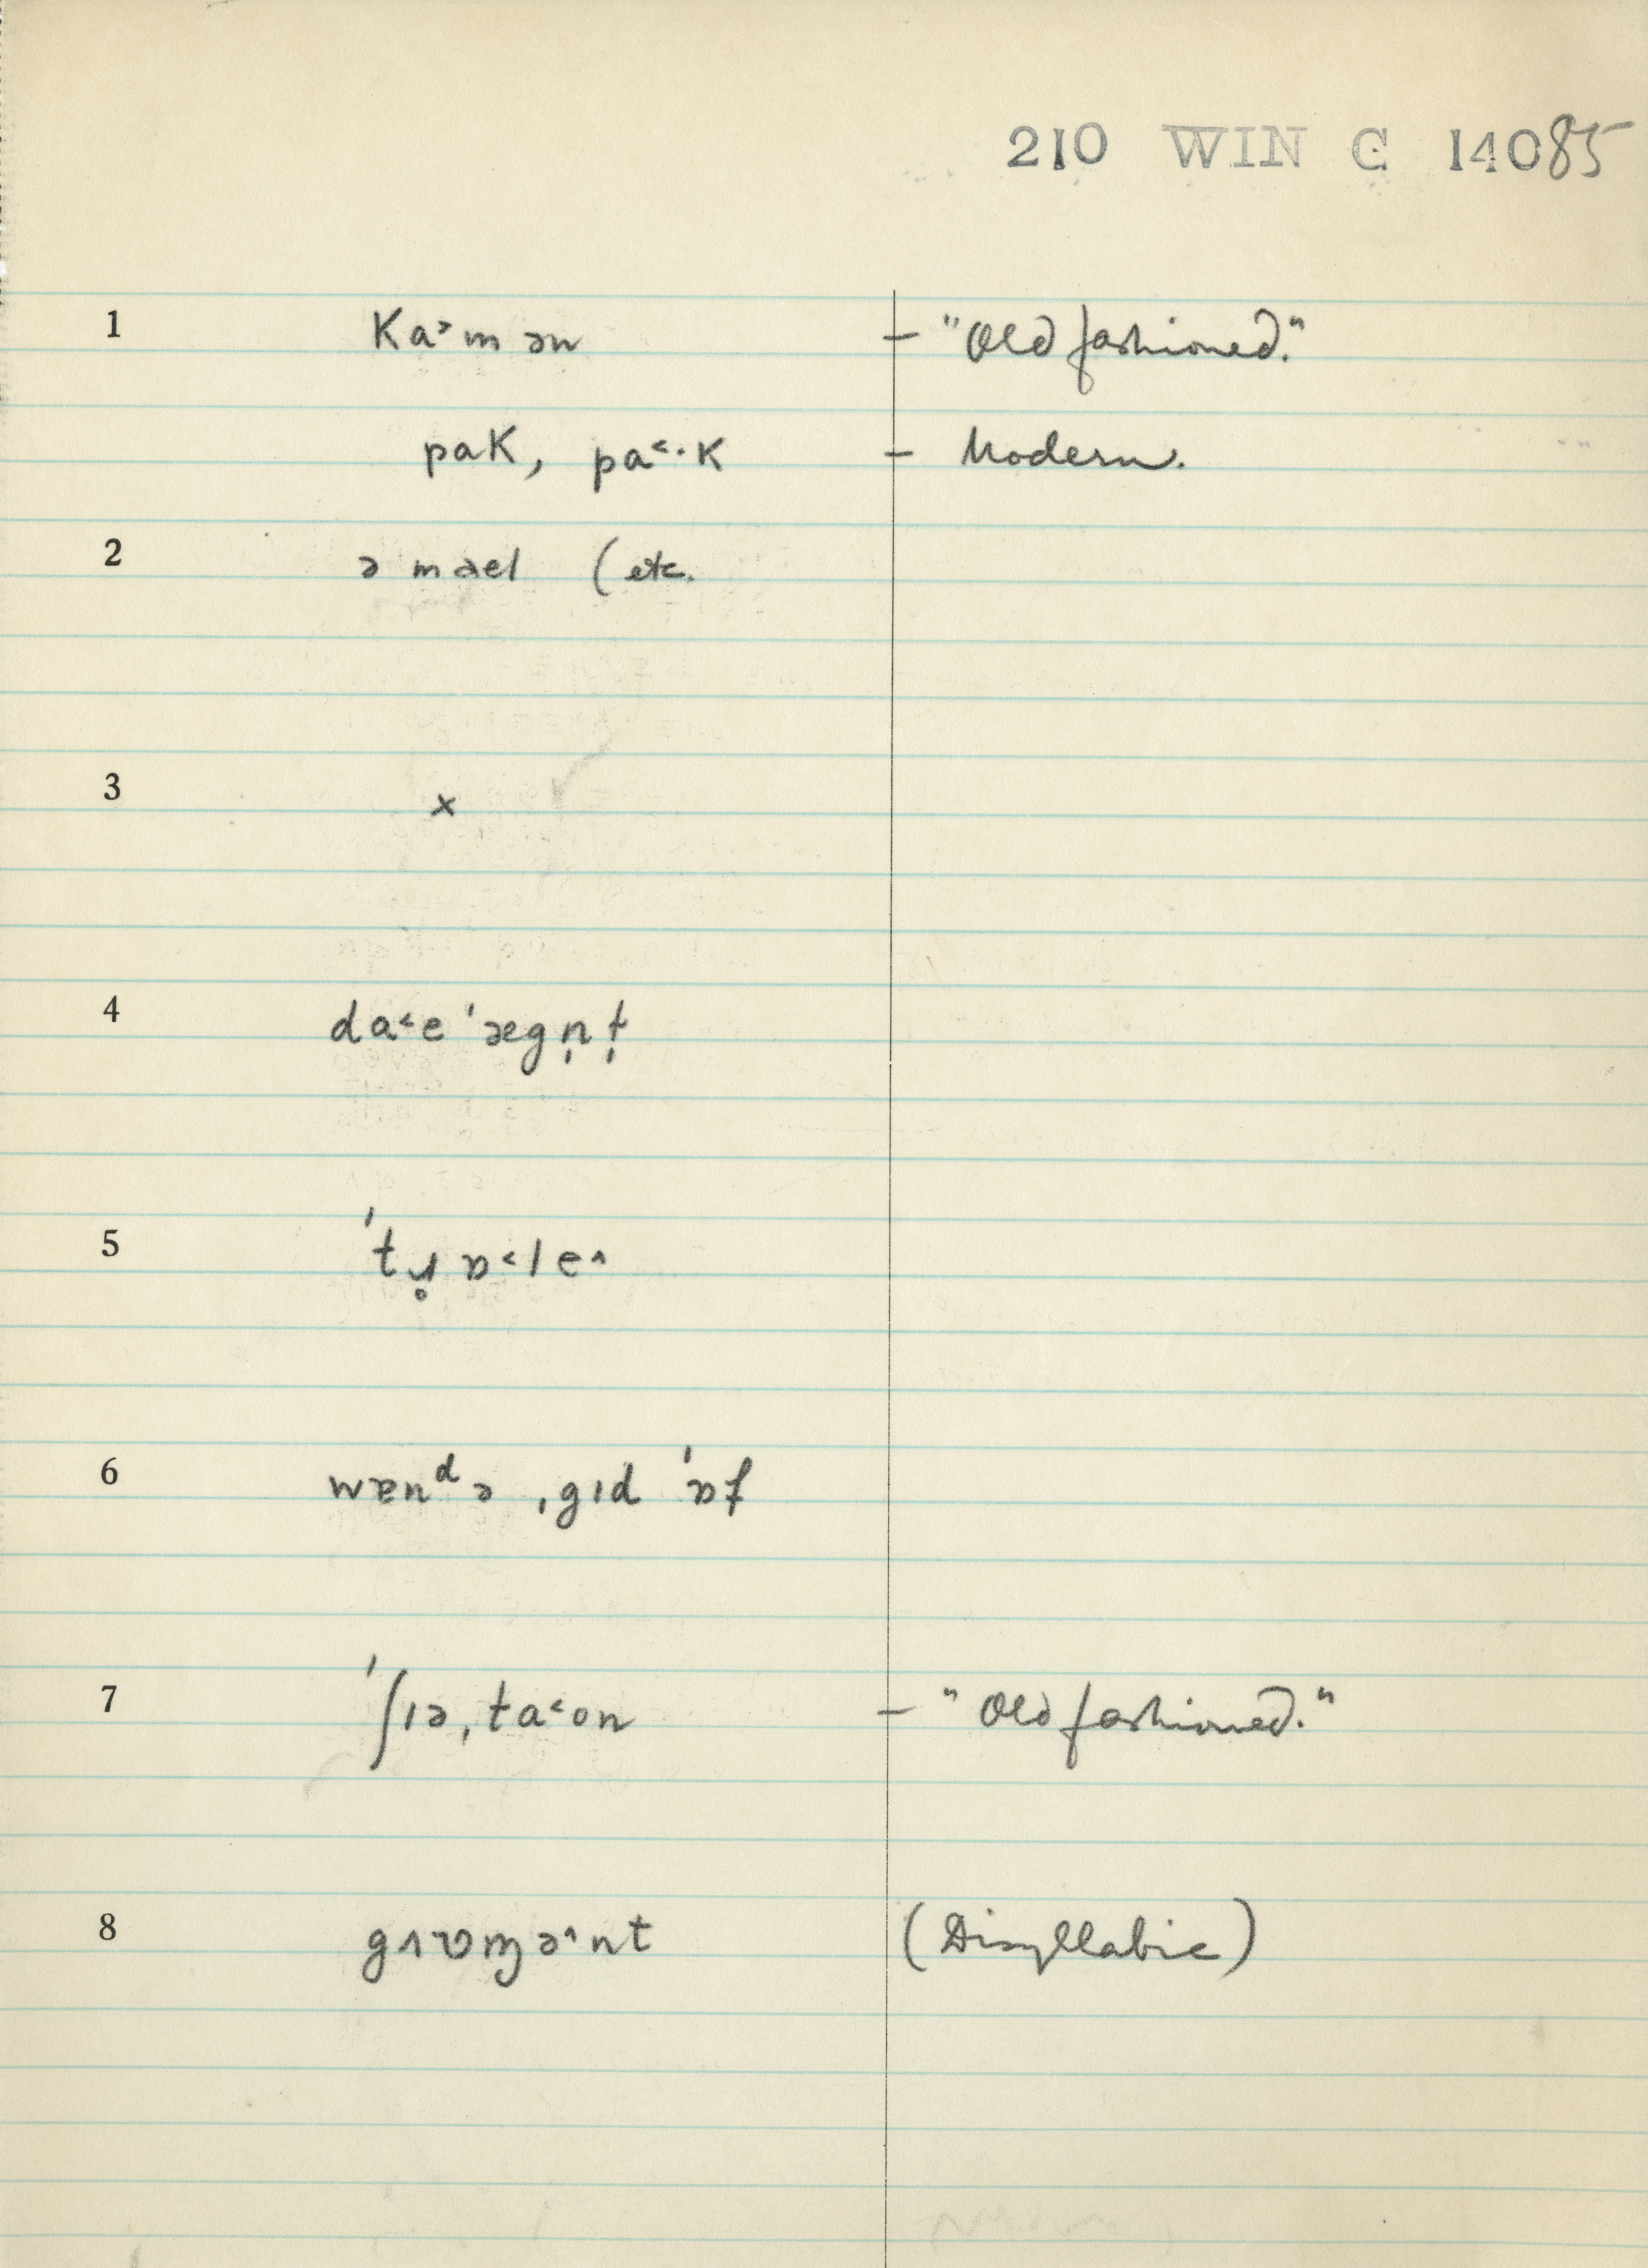 210 WIN C 14085
1 ka˃mən – "Old fashioned."
pak, pa˂·k – Modern.
2 ə mæel (etc.
3 x
4 da˂e ˈægn̩t̩
5 ˈtɹ̥ɒ˂le˄
6 wɐnᵈə ˌgɪd ˈɒf
7 ˈʃɪəˌta˂on – "Old fashioned."
8 gʌʊɱə˄nt (Disyllabic)